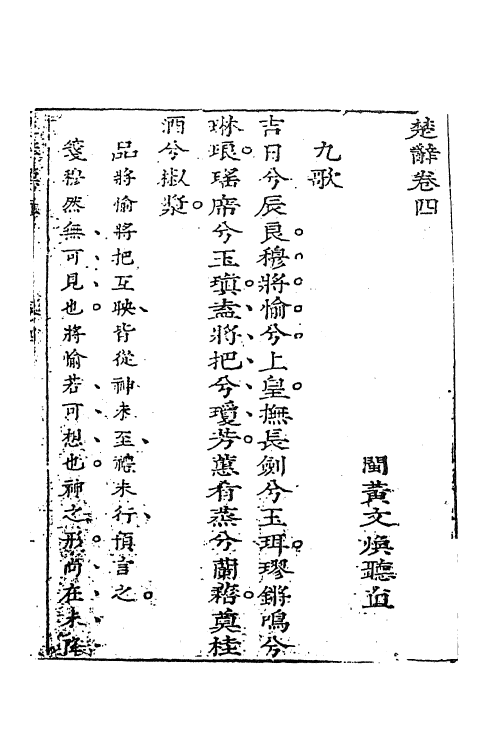 楚辭卷四
閩黃文煥聽直
九歌
吉日兮辰良穆將愉兮上皇撫長劍兮玉珥璆鏘鳴兮
琳琅瑤席兮玉瑱盍將把兮瓊芳蕙肴蒸兮蘭藉奠桂
酒兮椒漿
品將愉將把互映皆從神未至禮未行預言之
篗穆然無可見也將愉若可想也神之形尚在未降